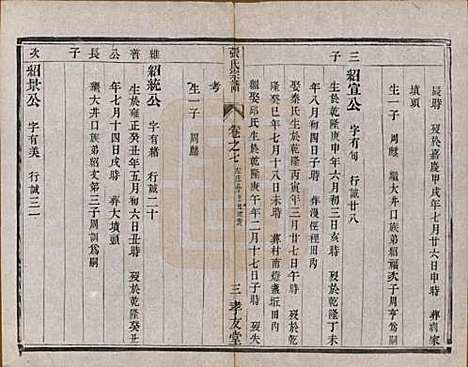 辰時 歿於嘉慶甲戌年七月廿六日申時 葬
墳頭
生一子 周 繼大井口族弟紹 次子周亨為嗣
三子
紹宣公 字有旬 行誠廿八
生於乾隆庚申年六月初三日亥時 歿於乾隆丁未
年八月初四日子時 葬 徑裡田內
娶秦氏生於乾隆丙寅年三月廿九日 時 歿於乾
隆癸巳年七月十八日未時 葬村南燈盞坵田內
繼娶邱氏生於乾隆庚午年二月十七日子時 歿失
張氏宗譜
卷之七
三 孝友堂
考
生一子 周
雍公長子
紹統公 字有緒 行誠二十
生於雍正癸丑年五月初六日戌時 歿於乾隆癸丑
年七月十四日戌時 葬大墳頭
繼大井口族弟紹 第三子周訓為嗣
次
紹景公 字有美 行誠三一